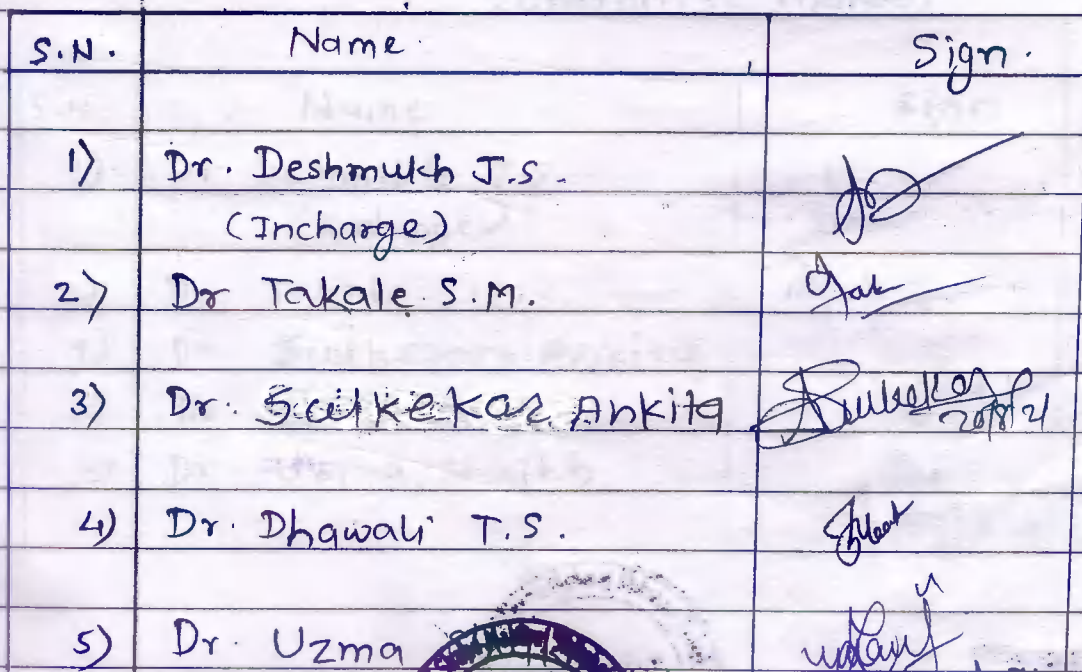 S.N. Name Sign.
1) Dr. Deshmukh J.S.
(Incharge)
2) Dr Takale S.M.
3) Dr. Ankita
20/8/21
4) Dr. Dhawali T.S.
5) Dr. Uzma